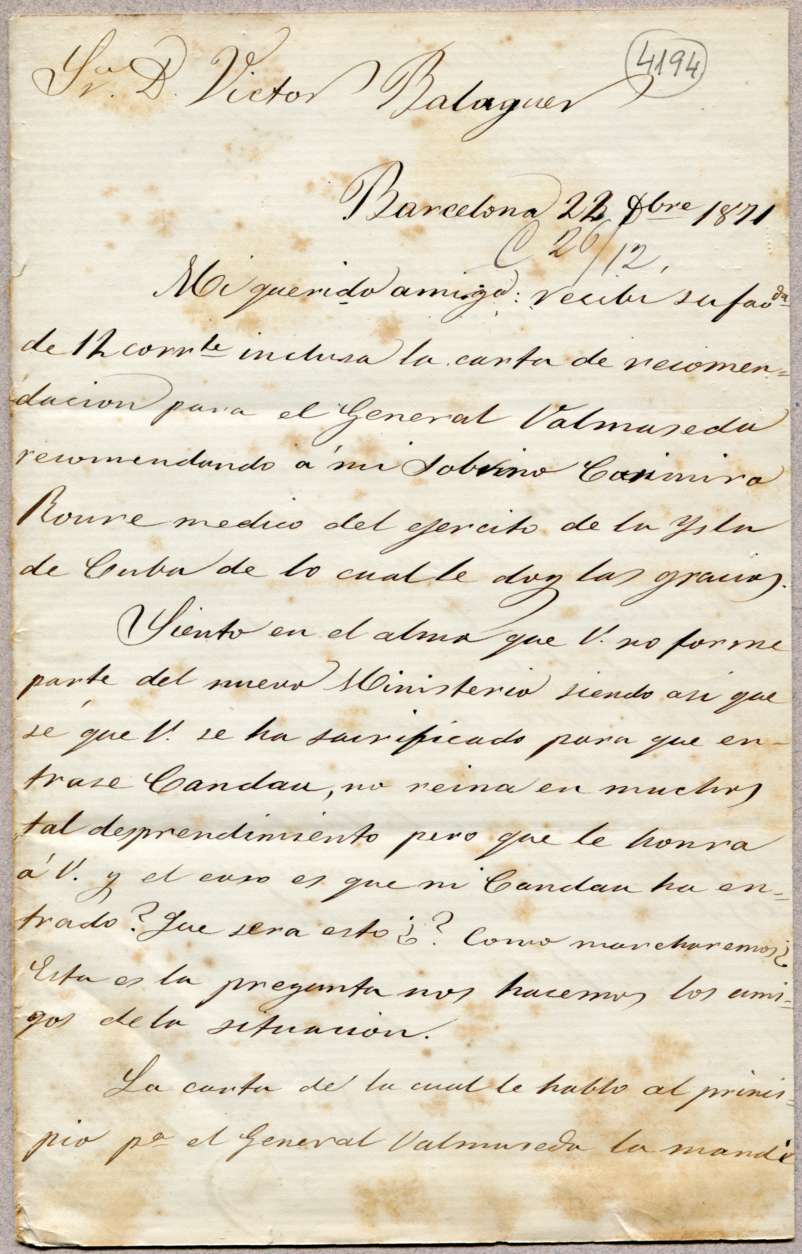 4194
Sr. D. Victor Balaguer
Barcelona 22 Dbre 1871
C 26/12,
Mi querido amigo: recibi su favda
de 12 corrte inclusa la carta de recomen-
dacion para el General Valmaseda
recomendando á mi Sobrino Casimiro
Roure medico del ejercito de la Ysla
de Cuba de lo cual le doy las gracias.
Siento en el alma que V. no forme
parte del nuevo Ministerio siendo asi que
sé que V. se ha sacrificado para que en-
trase Candau, no reina en muchos
tal desprendimiento pero que le honra
á V. y el caso es que ni Candau ha en-
trado? Que sera esto ¿? Como marcharemos?
Esta es la pregunta nos hacemos los ami-
gos de la situacion.
La carta de la cual le hablo al princi-
pio pa el General Valmaseda la mandé